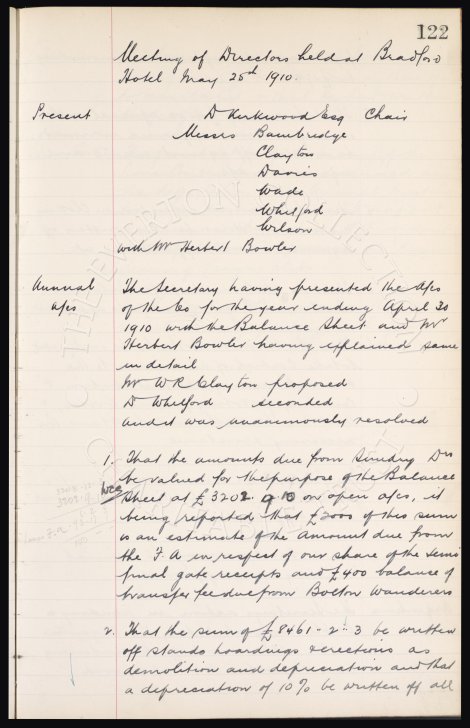 122
Meeting of Directors held at Bradford
Hotel May 25th 1910.
Present
D Kirkwood Esq Chair
Messrs Bainbridge
Clayton
Davies
Wade
Whitford
Wilson
with Mr Herbert Bowler
Annual
a/cs
The Secretary having presented the A/cs
of the Co for the year ending April 30
1910 with the Balance Sheet and Mr
Herbert Bowler having explained same
in detail
Mr W R Clayton proposed
D Whitford seconded
and it was unanimously resolved
1. That the amounts due from Sundry Drs
be valued for the purpose of the Balance
Sheet at £3202 9 10 on open a/cs, it
being reported that £3000 of this sum
is an estimate of the Amount due from
the F.A in respect of our share of the semi
final gate receipts and £400 balance of
transfer fee due from Bolton Wanderers
2. That the sum of £8461-2-3 be written
off stands hoardings & erections as
demolition and depreciation and that
a depreciation of 10% be written off all
THE EVERTON COLLECTION